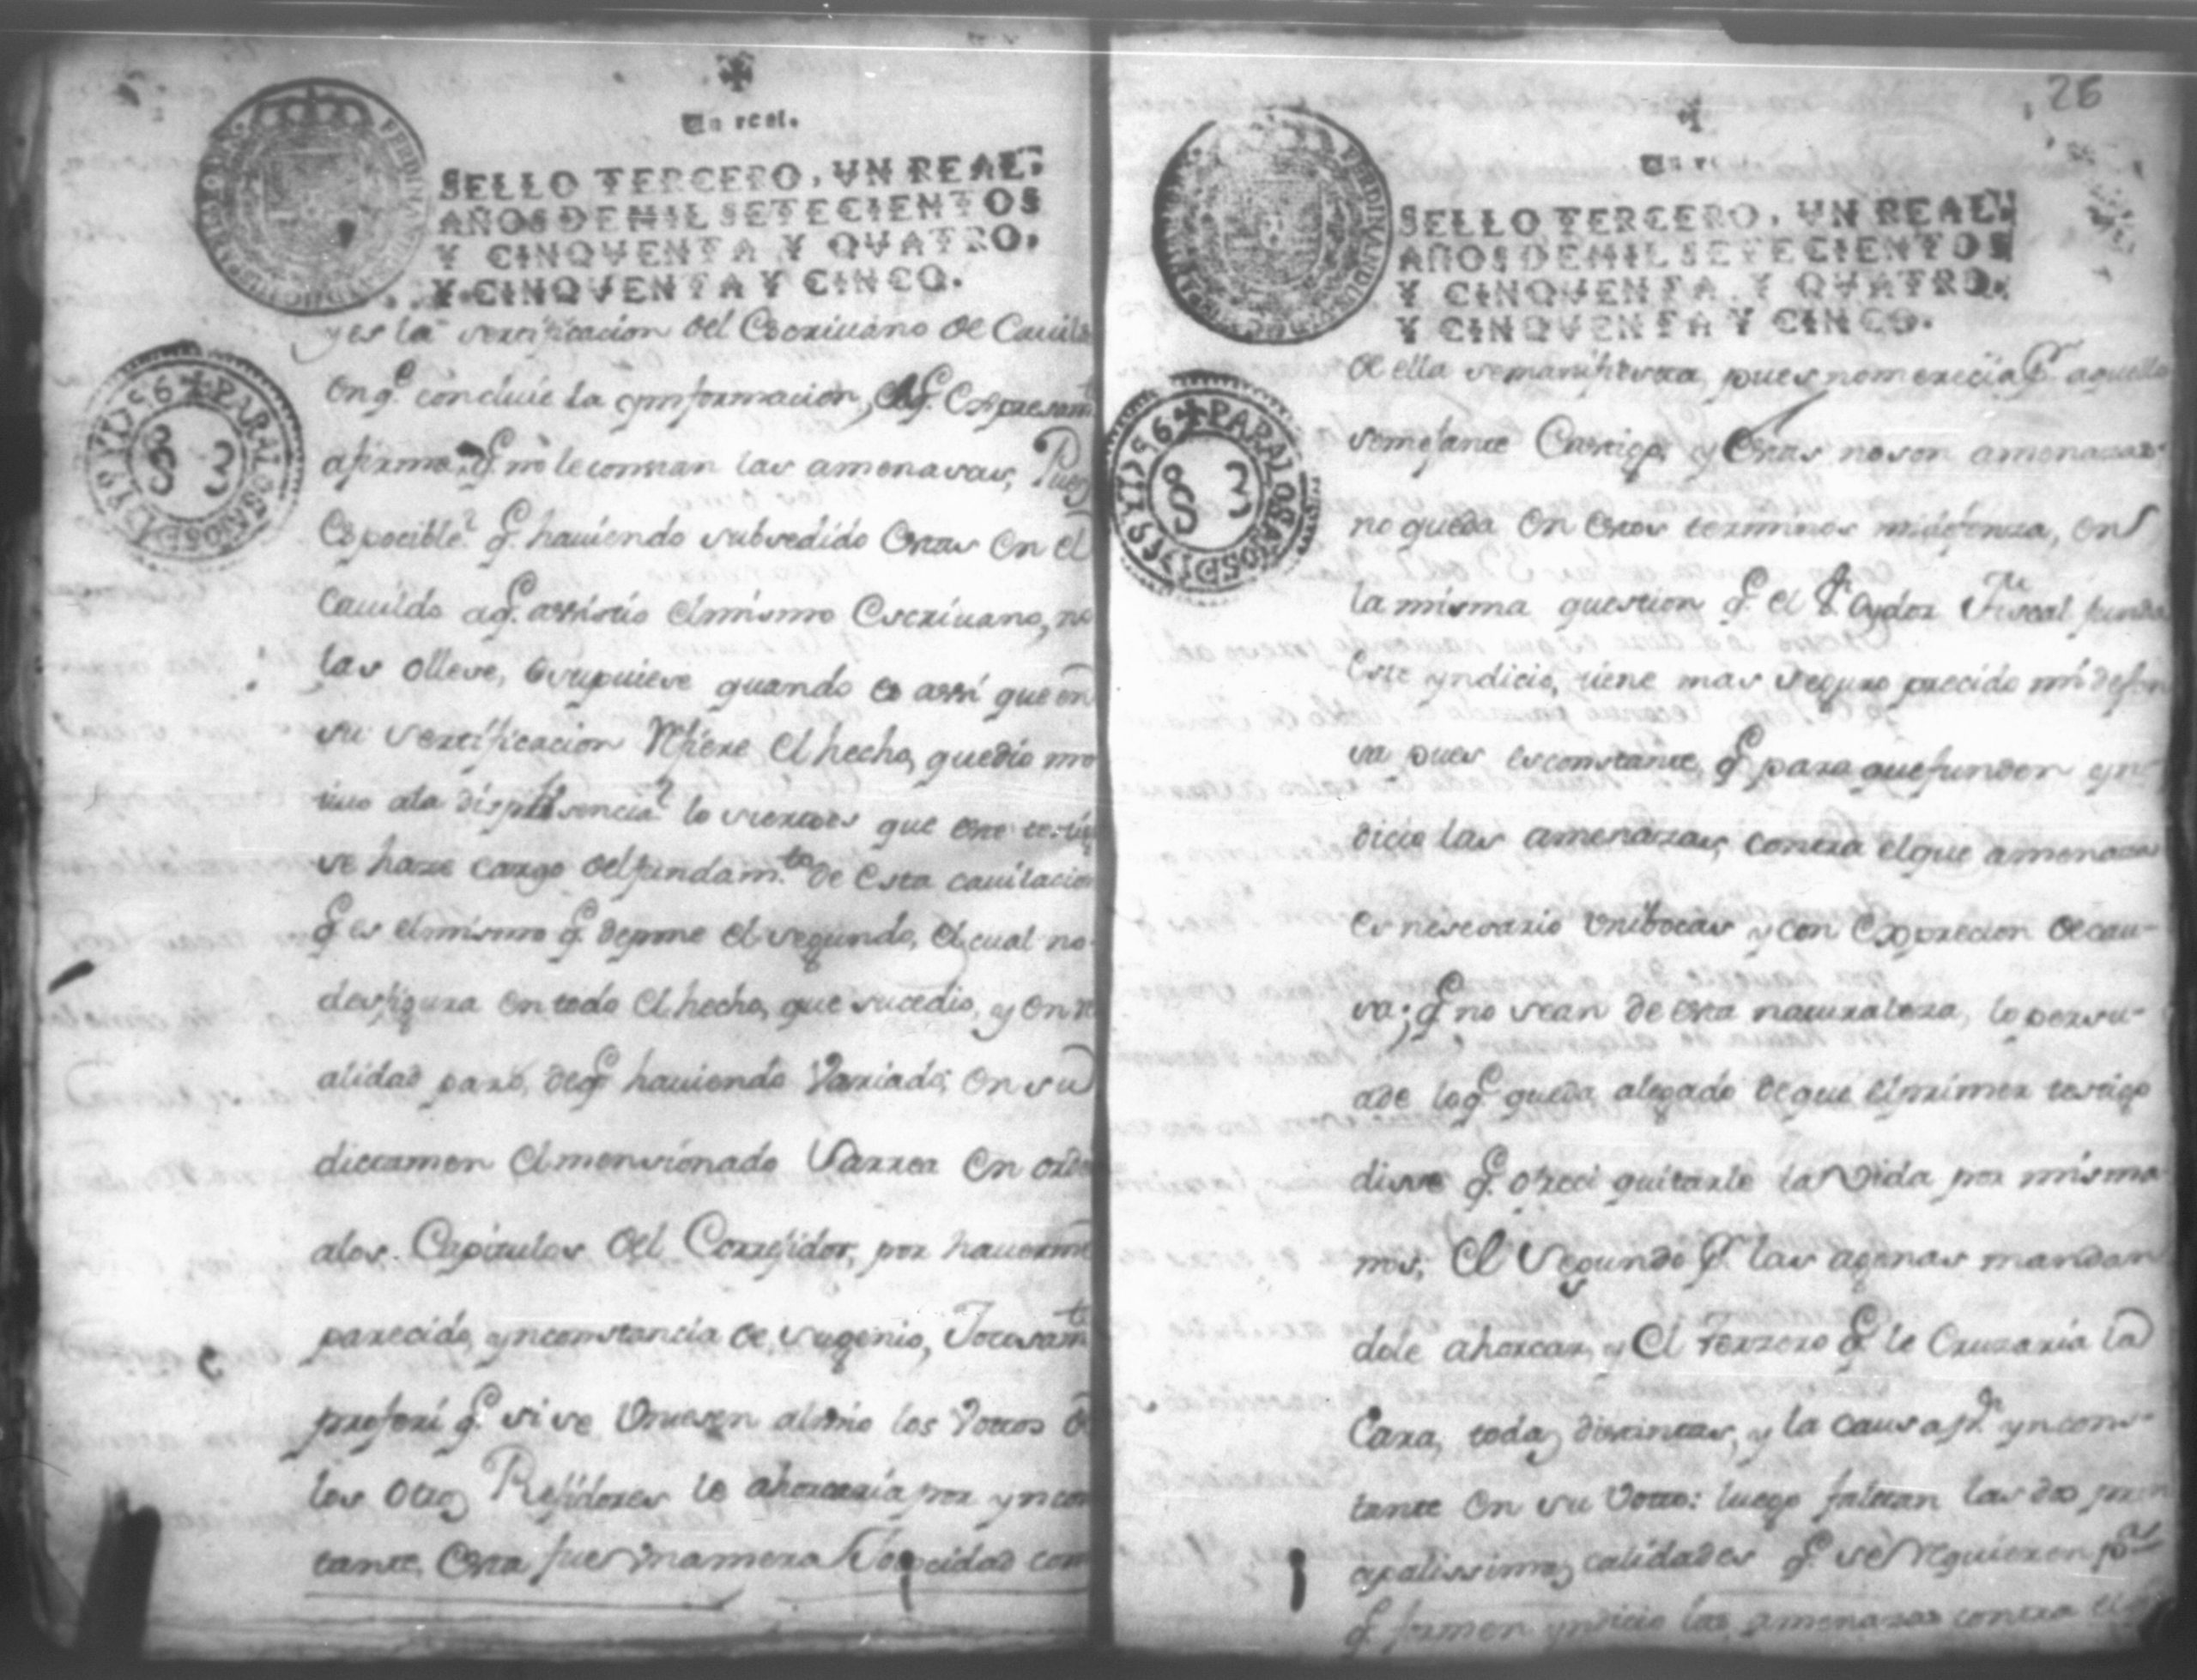 Un real.
SELLO TERCERO, VN REAL,
AÑOS DE MIL SETECIENTOS
Y CINQVENTA Y QVATRO,
Y CINQVENTA Y CINCO.
PARA LOS AÑOS D 1755 Y 1756
yes la certificacion del Escriuano de Cauild
en q.e concluie la ynformacion,
afirma q.e no le constan las amenasas, Pues
Es pocible? q.e hauiendo subsedido Estas en el
Cauildo a q.e assistio el mismo Escriuano, no
las ollese, o supuiese quando es assi que en
su certificacion Refiere el hecho, que dio mo
tiuo a la lo cierto es que este testig
se haze cargo del fundam.to de Esta cauilacion
q.e es el mismo q.e depone el segundo, el cual no
desfigura en todo el hecho, que sucedio, y en re
alidad pasó, de q.e hauiendo Variado, en su
dictamen el mensionado Varrea en orde
a los Capitulos del Corregidor, por hauerme
parecido, ynconstancia de su genio, Jocosam.te
proferi q.e si se Uniesen al mio los Vottos de
los otros Regidores lo ahorcaria por yncons
tante, Esta fue vna mera Jococidad com
26
Un re
SELLO TERCERO, VN REAL,
AÑOS DE MIL SETECIENTOS
Y CINQVENTA Y QVATRO,
Y CINQVENTA Y CINCO.
PARA LOS AÑOS D 1755 Y 1756
de ella se manifiesta, pues no merecia p.r aquello
semejante Castigo, y Estas no son amenazas
no queda en Estos terminos mi defenza, en
la misma question q.e el S.r Oydor Fiscal funda
Este yndicio, tiene mas seguro precido mi defen
sa pues es constante, q.e para que funden yn-
dicio las amenazas, contra el que amenaza
es nesesario Unibocas y con Exprecion de cau-
sa; q.e no sean de esta naturaleza, lo persu-
ade lo q.e queda alegado de que el primer testigo
disse q.e ofreci quitarle la Vida por mi sma
nos; El Segundo p.r las agenas mandan
dole ahorcar, y El Terzero q.e le Cruzaria la
Cara, todas distintas, y la causa p.r yncons-
tante en su Votto: luego faltan las dos prin
cipalissimas calidades q.e se requieren p.a
q.e formen yndicio las amenazas contra el